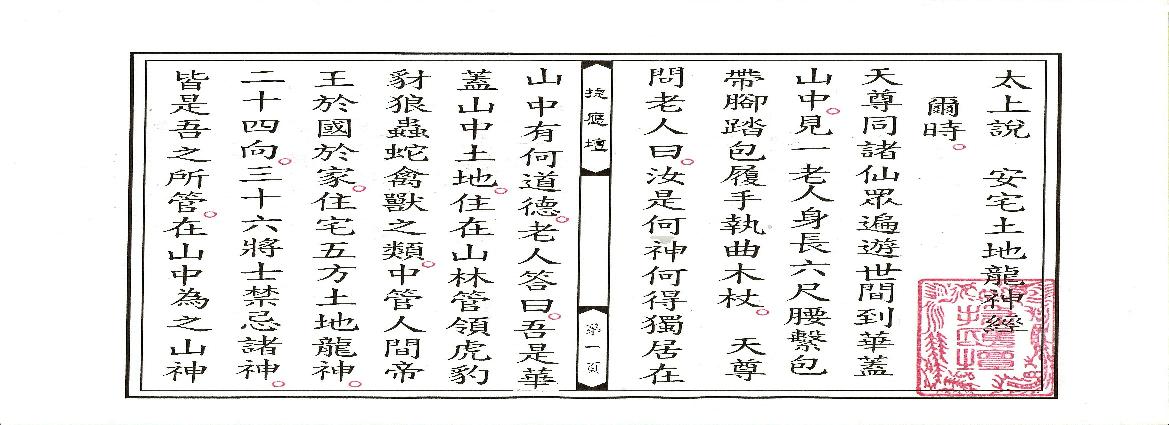 太上說　安宅土地龍神經
爾時。
天尊同諸仙眾遍遊世間到華蓋
山中。見一老人身長六尺腰繫包
帶腳踏包履手執曲木杖。　天尊
問老人曰。汝是何神何得獨居在
捷應壇
第一頁
山中有何道德。老人答曰。吾是華
蓋山中土地。住在山林管領虎豹
豺狼蟲蛇禽獸之類。中管人間帝
王於國於家。住宅五方土地龍神。
二十四向。三十六將士禁忌諸神。
皆是吾之所管。在山中為之山神